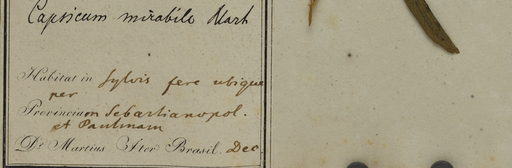 Capsicum mirabile Mart
Habitat in sylvis fere ubique
per
Provinciam Sebastianopol.
et Paulinam
Dr Martius Iter Brasil. Dec